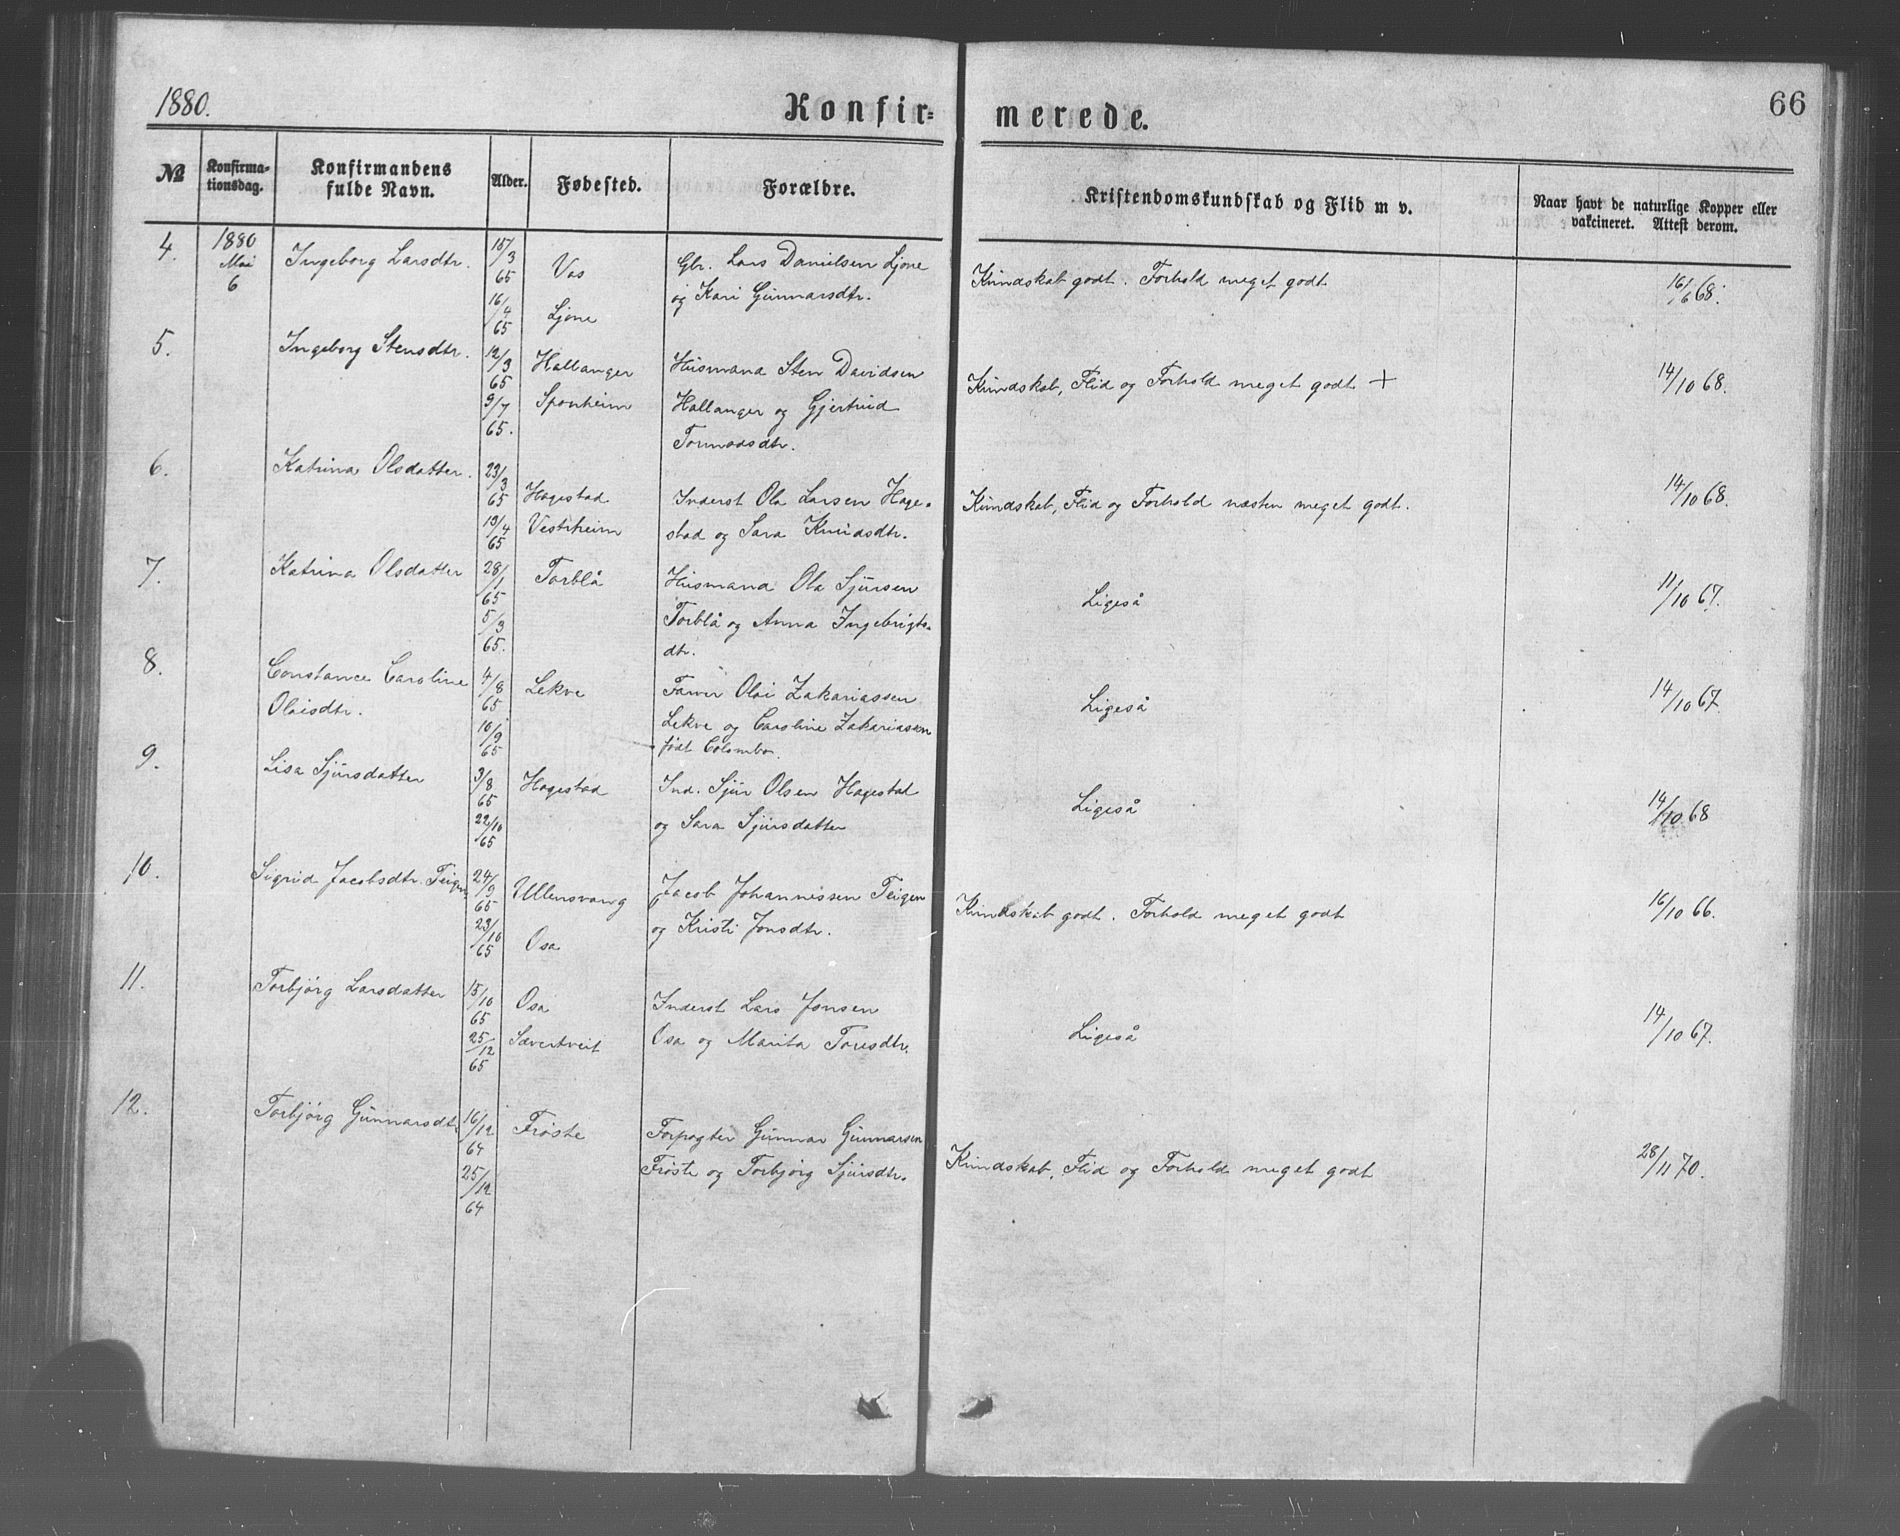 1880.
Konfir=
merede.
66
№
Konfirma-
tionsdag.
Konfirmandens
fulde Navn.
Alder.
Fødested.
Forældre.
Kristendomskundskab og Flid m v.
Naar havt de naturlige Kopper eller
vakcineret. Attest derom.
4.
1880
Mai
6
Ingeborg Larsdtr.
15/3
65
16/4
65
Vos
Ljone
Gbr. Lars Danielsen Ljone
og Kari Gunnarsdtr.
Kundskab godt. Forhold meget godt
16/6 68.
5.
Ingeborg Stensdtr.
12/3
65
9/7
65.
Hallanger
Sponheim
Husmand Sten Davidsen
Hallanger og Gjertrud
Tormodsdtr.
Kundskab, Flid og Forhold meget godt +
14/10 68.
6.
Katrina Olsdatter.
23/3
65
19/4
65
Hagestad
Vestrheim
Inderst Ola Larsen Hage-
stad og Sara Knudsdtr.
Kundskab, Flid og Forhold næsten meget godt.
14/10 68.
7.
Katrina Olsdatter
28/1
65
5/3
65.
Torblå
Husmand Ola Sjursen
Torblå og Anna Ingebrigts-
dtr.
Ligeså
11/10 67.
8.
Constance Caroline
Olaisdtr.
4/8
65
10/9
65
Lekve
Farver Olai Zakariassen
Lekve og Caroline Zakariassen
født Colombo.
Ligeså
14/10 67.
9.
Lisa Sjursdatter
3/8
65
22/10
65
Hagestad
Ind. Sjur Olsen Hagestad
og Sara Sjursdatter
Ligeså
14/10 68
10.
Sigrid Jacobsdtr. Teigen
24/9
65
23/10
65
Ullensvang
Osa
Jacob Johannissen Teigen
og Kristi Jonsdtr.
Kundskab godt. Forhold meget godt
16/10 66.
11.
Torbjørg Larsdatter
15/10
65
25/12
65
Osa
Sævertveit
Inderst Lars Jonsen
Osa og Marita Toresdtr.
Ligeså
14/10 67.
12.
Torbjørg Gunnarsdtr.
16/12
64
25/12
64
Frøste
Forpagter Gunnar Gunnarsen
Frøste og Torbjørg Sjursdtr.
Kundskab, Flid og Forhold meget godt
28/11 70.